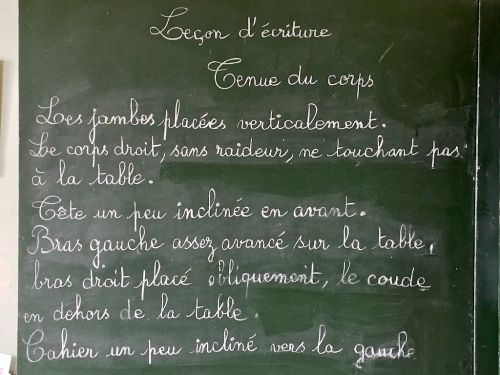 Leçon d'écriture
Tenue du corps
Les jambes placées verticalement.
Le corps droit, sans raideur, ne touchant pas
à la table.
Tête un peu inclinée en avant.
Bras gauche assez avancé sur la table,
bras droit placé obliquement, le coude
en dehors de la table.
Cahier un peu incliné vers la gauche